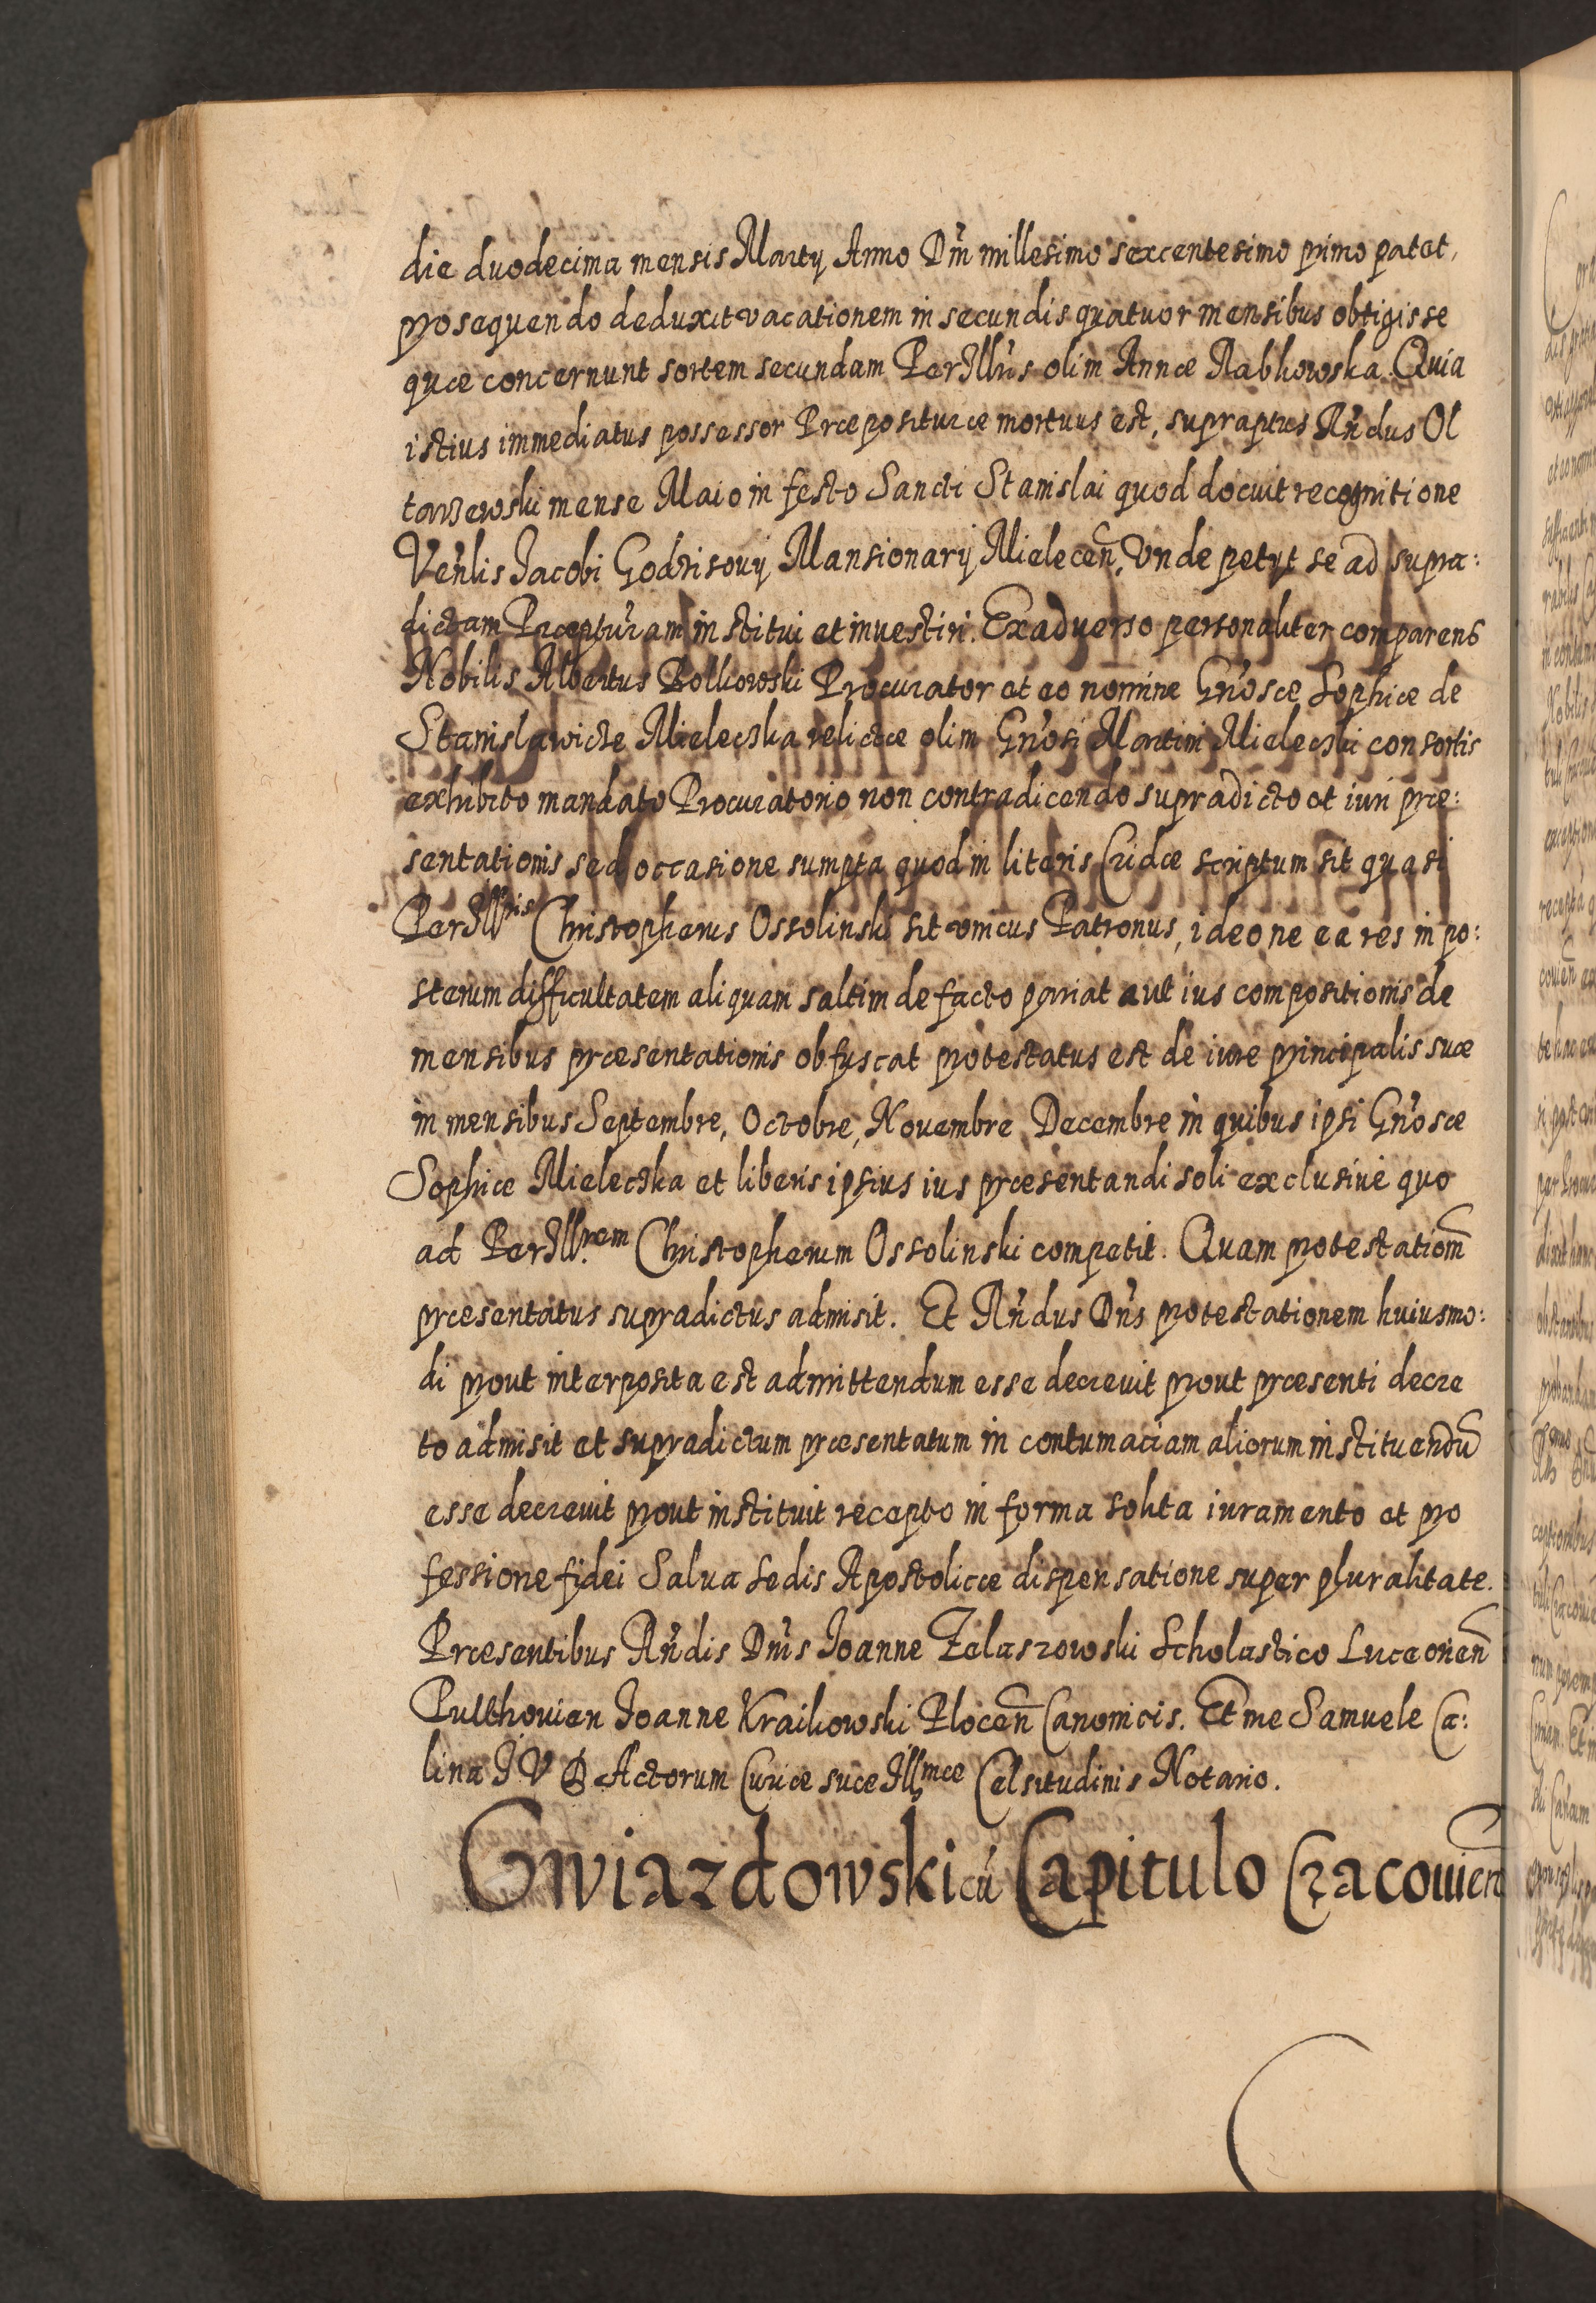 die duodecima mensis Martÿ Anno Dñi millesimo sexcentesimo primo patet,
prosequendo deduxit vacationem in secundis quatuor mensibus obtigisse
quæ concernunt sortem secundam PerIllrĩs olim Annæ Rabkowska. Quia
istius immediatus possessor Præposituræ mortuus est, supraptus Rñdus Ol
tarzewski mense Maio in festo Sancti Stanislai quod docuit recognitione
Venlis Iacobi Godzisouij Mansionarij Mielecen̄, Vnde petÿt se ad supra:
dictam Præpturam institui et inuestiri. Exaduerso personaliter comparens
Nobilis Albertus Bolkowski Procurator et eo nomine Gñosæ Sophiæ de
Stanislawicze Mieleczka relictæ olim Gñosi Martini Mieleczki consortis
exhibito mandato Procuratorio non contradicendo supradicto et iuri præ:
sentationis sed occasione sumpta quod in literis Cridæ scriptum sit quasi
PerIllris Christopherus Ossolinski sit vnicus Patronus, ideo ne ea res in po:
sterum difficultatem aliquam saltim de facto pariat aut ius compositionis de
mensibus præsentationis obfuscat protestatus est de iure principalis suæ
in mensibus Septembre, Octobre, Nouembre Decembre in quibus ipsi Gñosæ
Sophiæ Mieleczka et liberis ipsius ius præsentandi soli exclusiue quo
ad PerIll.rem Christopherum Ossolinski competit. Quam protestationm̄
præsentatus supradictus admisit. Et Rñdus Dñs protestationem huiusmo:
di prout interposita est admittendum esse decreuit prout præsenti decre
to admisit et supradictum præsentatum in contumaciam aliorum instituendū
esse decreuit prout instituit recepto in forma solita iuramento et pro
fessione fidei Salua Sedis Apostolicæ dispensatione super pluralitate.
Præsentibus Rñdis Dñis Ioanne Zelaszowski Scholastico Luceorien̄
Pulthouien Ioanne Kraikowski Plocen̄ Canonicis. Et me Samuele Ca:
lina I V D Actorum Curiæ suæ Illmæ Celsitudinis Notario.
Gwiazdowski cū Capitulo Cracouien̄